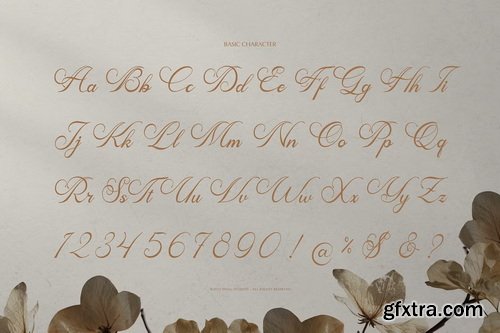 BASIC CHARACTER
Aa Bb Cc Dd Ee Ff Gg Hh Ii
Jj Kk Ll Mm Nn Oo Pp Qq
Rr Ss Tt Uu Vv Ww Xx Yy Zz
1234567890!@%$&?
ALL RIGHTS RESERVED
gfxtra.com